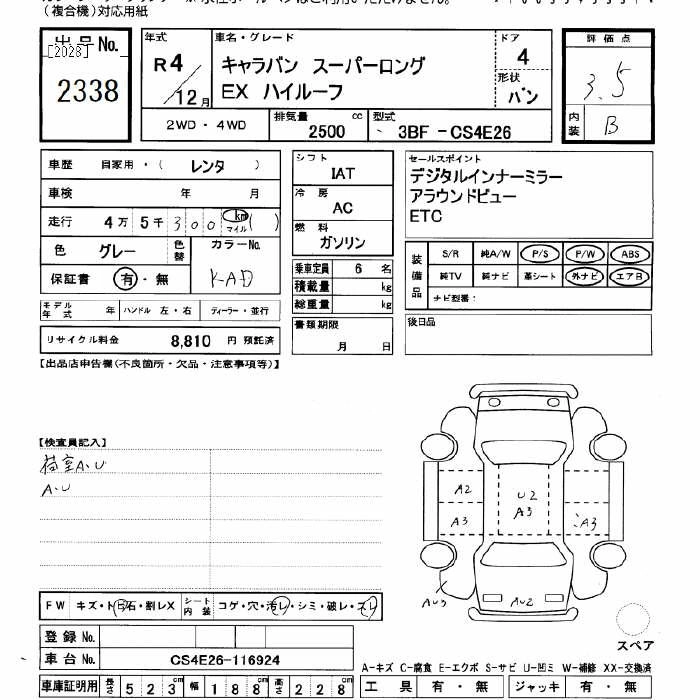 (複合機)対応用紙
出品No.
[2028]
2338
年式
R4/12月
車名・グレード
キャラバン スーパーロング
EX ハイルーフ
ドア
4
形状
バン
評価点
3.5
内装
B
2WD・4WD
排気量
2500 cc
型式
3BF -CS4E26
車歴 自家用・( レンタ )
車検 年 月
走行 4万 5千 3 0 0 km マイル ( )
色 グレー
色替
カラーNo.
KAD
保証書 有・無
モデル年式 年 ハンドル 左・右 ディーラー・並行
リサイクル料金 8,810 円 預託済
シフト
IAT
冷房
AC
燃料
ガソリン
乗車定員 6 名
積載量 kg
総重量 kg
書類期限
月 日
セールスポイント
デジタルインナーミラー
アラウンドビュー
ETC
装備品
S/R 純A/W P/S P/W ABS
純TV 純ナビ 革シート 外ナビ エアB
ナビ型番:
後日品
【出品店申告欄(不良箇所・欠品・注意事項等)】
【検査員記入】
荷室A・U
A・U
A2
A3
U2
A3
A3
AU3
AU2
スペア
FW キズ・ト石・割レX
シート内装
コゲ・穴・汚レ・シミ・破レ・スレ
登録No.
車台No. CS4E26-116924
車庫証明用 長さ 523cm 幅 188cm 高さ 228cm
A-キズ C-腐食 E-エクボ S-サビ U-凹ミ W-補修 XX-交換済
工具 有・無 ジャッキ 有・無